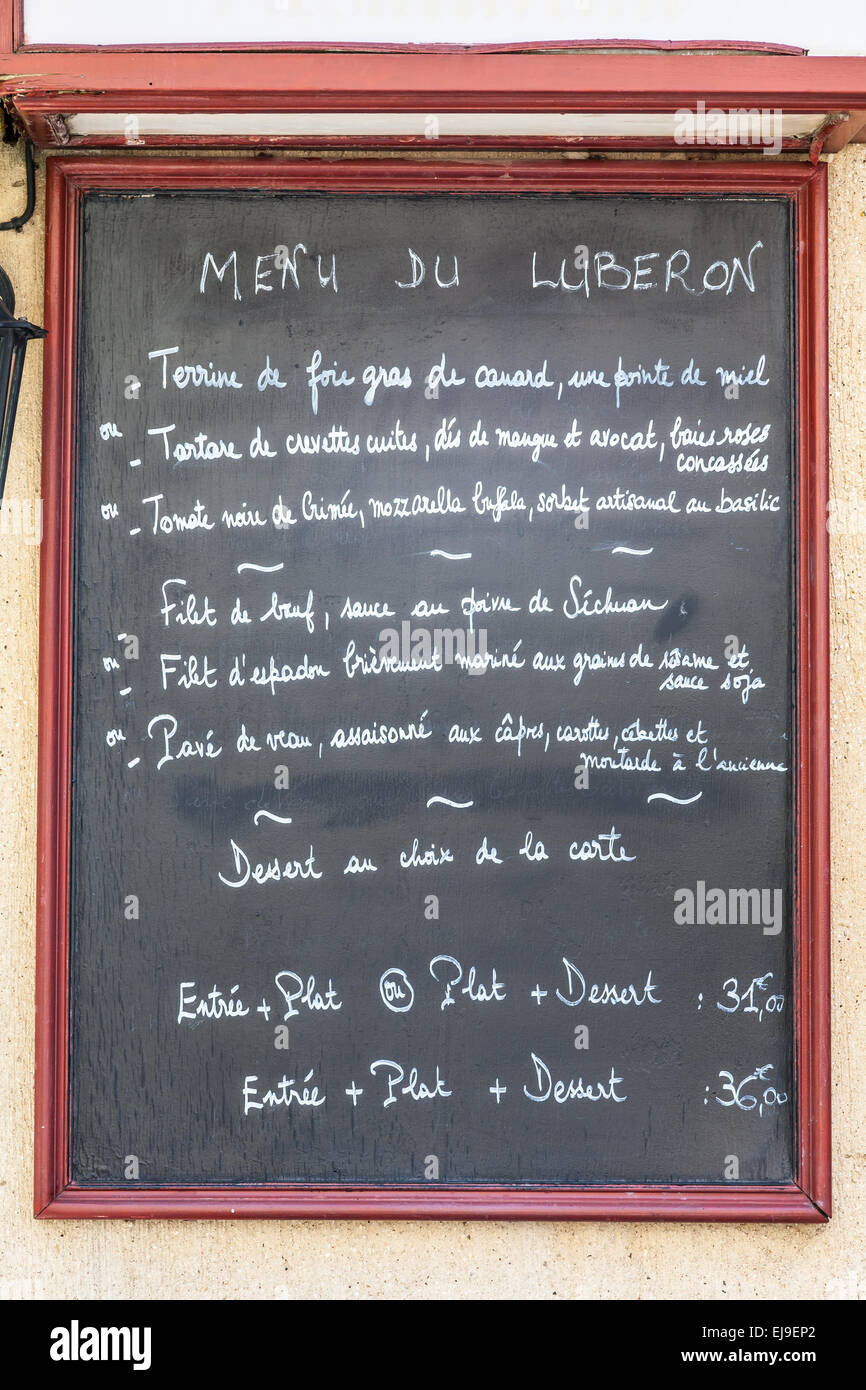 MENU DU LUBERON
- Terrine de foie gras de canard, une pointe de miel
ou - Tartare de crevettes cuites, dés de mangue et avocat, baies roses
concassées
ou - Tomate noire de Crimée, mozzarella buffala, sorbet artisanal au basilic
~ ~ ~
- Filet de bœuf, sauce au poivre de Séchuan
ou - Filet d'espadon brièvement mariné aux grains de sésame et
sauce soja
ou - Pavé de veau, assaisonné aux câpres, carottes, cébettes et
moutarde à l'ancienne
~ ~ ~
Dessert au choix de la carte
Entrée + Plat ou Plat + Dessert : 31€,00
Entrée + Plat + Dessert : 36€,00
alamy stock photo
EJ9EP2
www.alamy.com